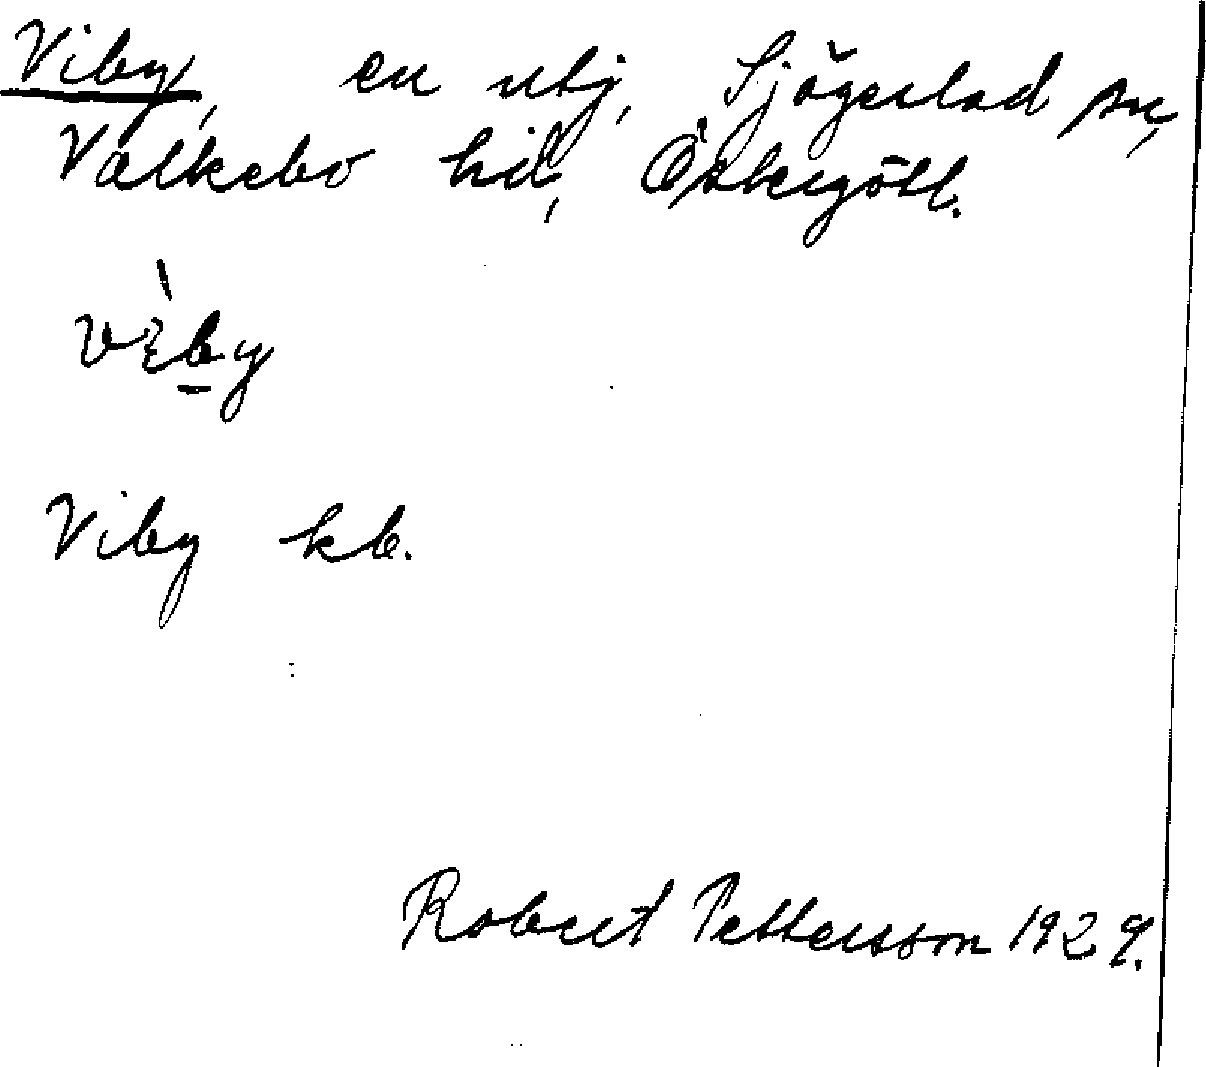 Viby, en utj, Sjögestad sn,
Valkebo hd, Östergötl.
vɛ̀by
Viby kb.
Robert Pettersson 1929.